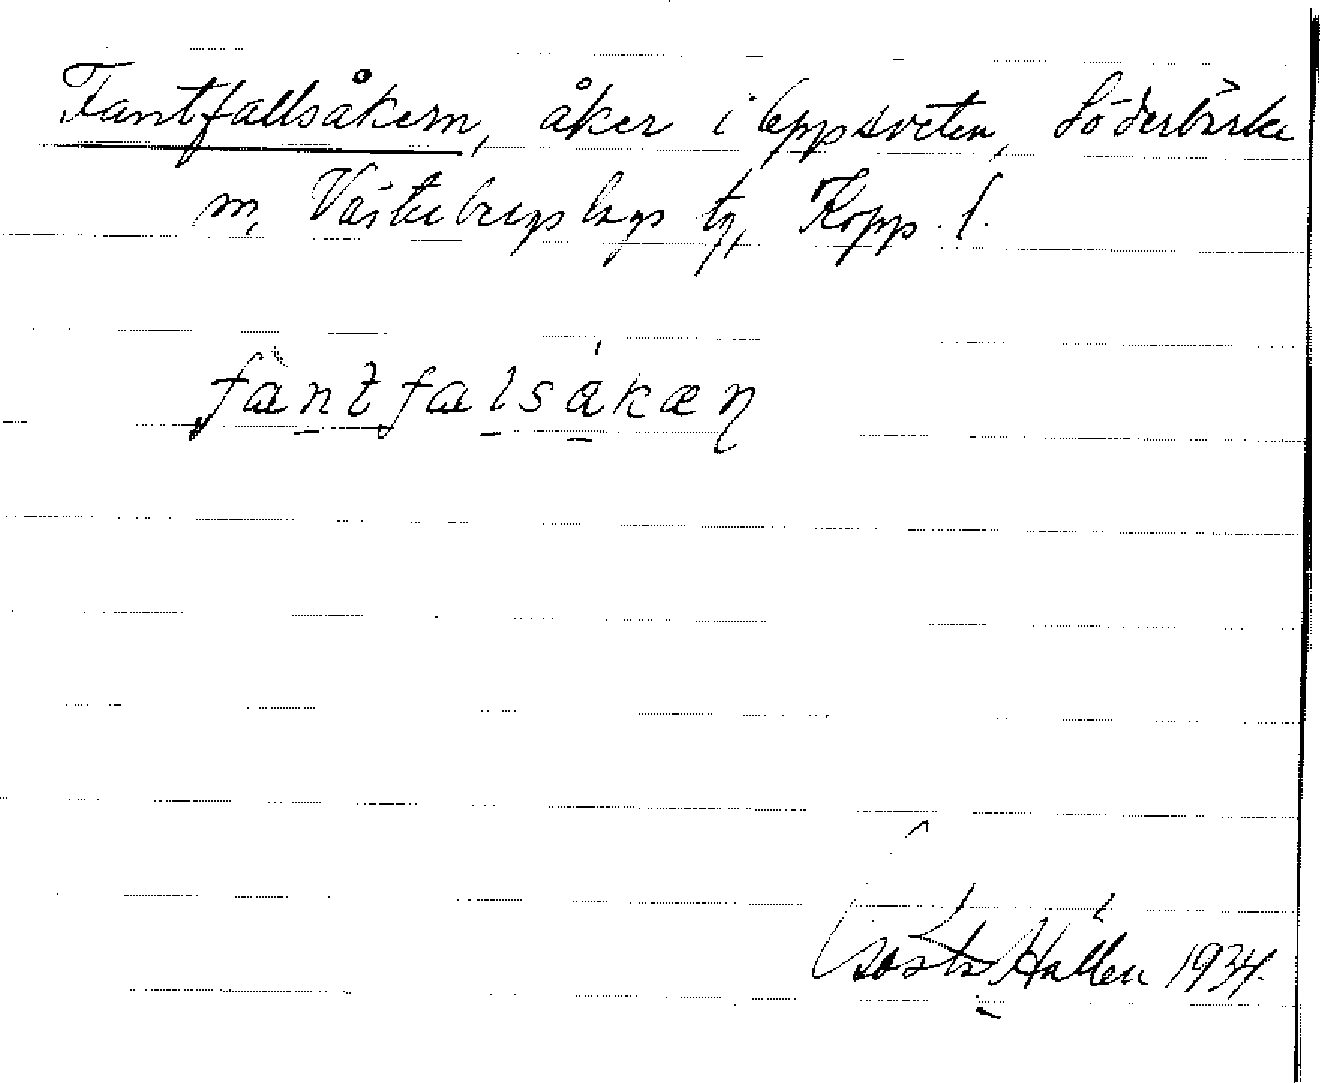 Fantfallsåkern, åker i Eppsveten, Söderbärke
sn, Västerbergslags tg, Kopp. l.
fàntfalsákæn
Gösta Hallén 1934.